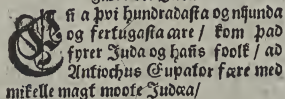 EN a þvi hundradasta og nijunda
og fertugasta aare / kom þad
fyrer Juda og hans foolk / ad
Antiochus Eupator fære med
mikelle magt moote Judæa /